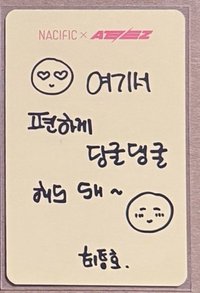 NACIFIC × ATEEZ
여기서
편하게
딩굴댕굴
해도 돼~
최종호.